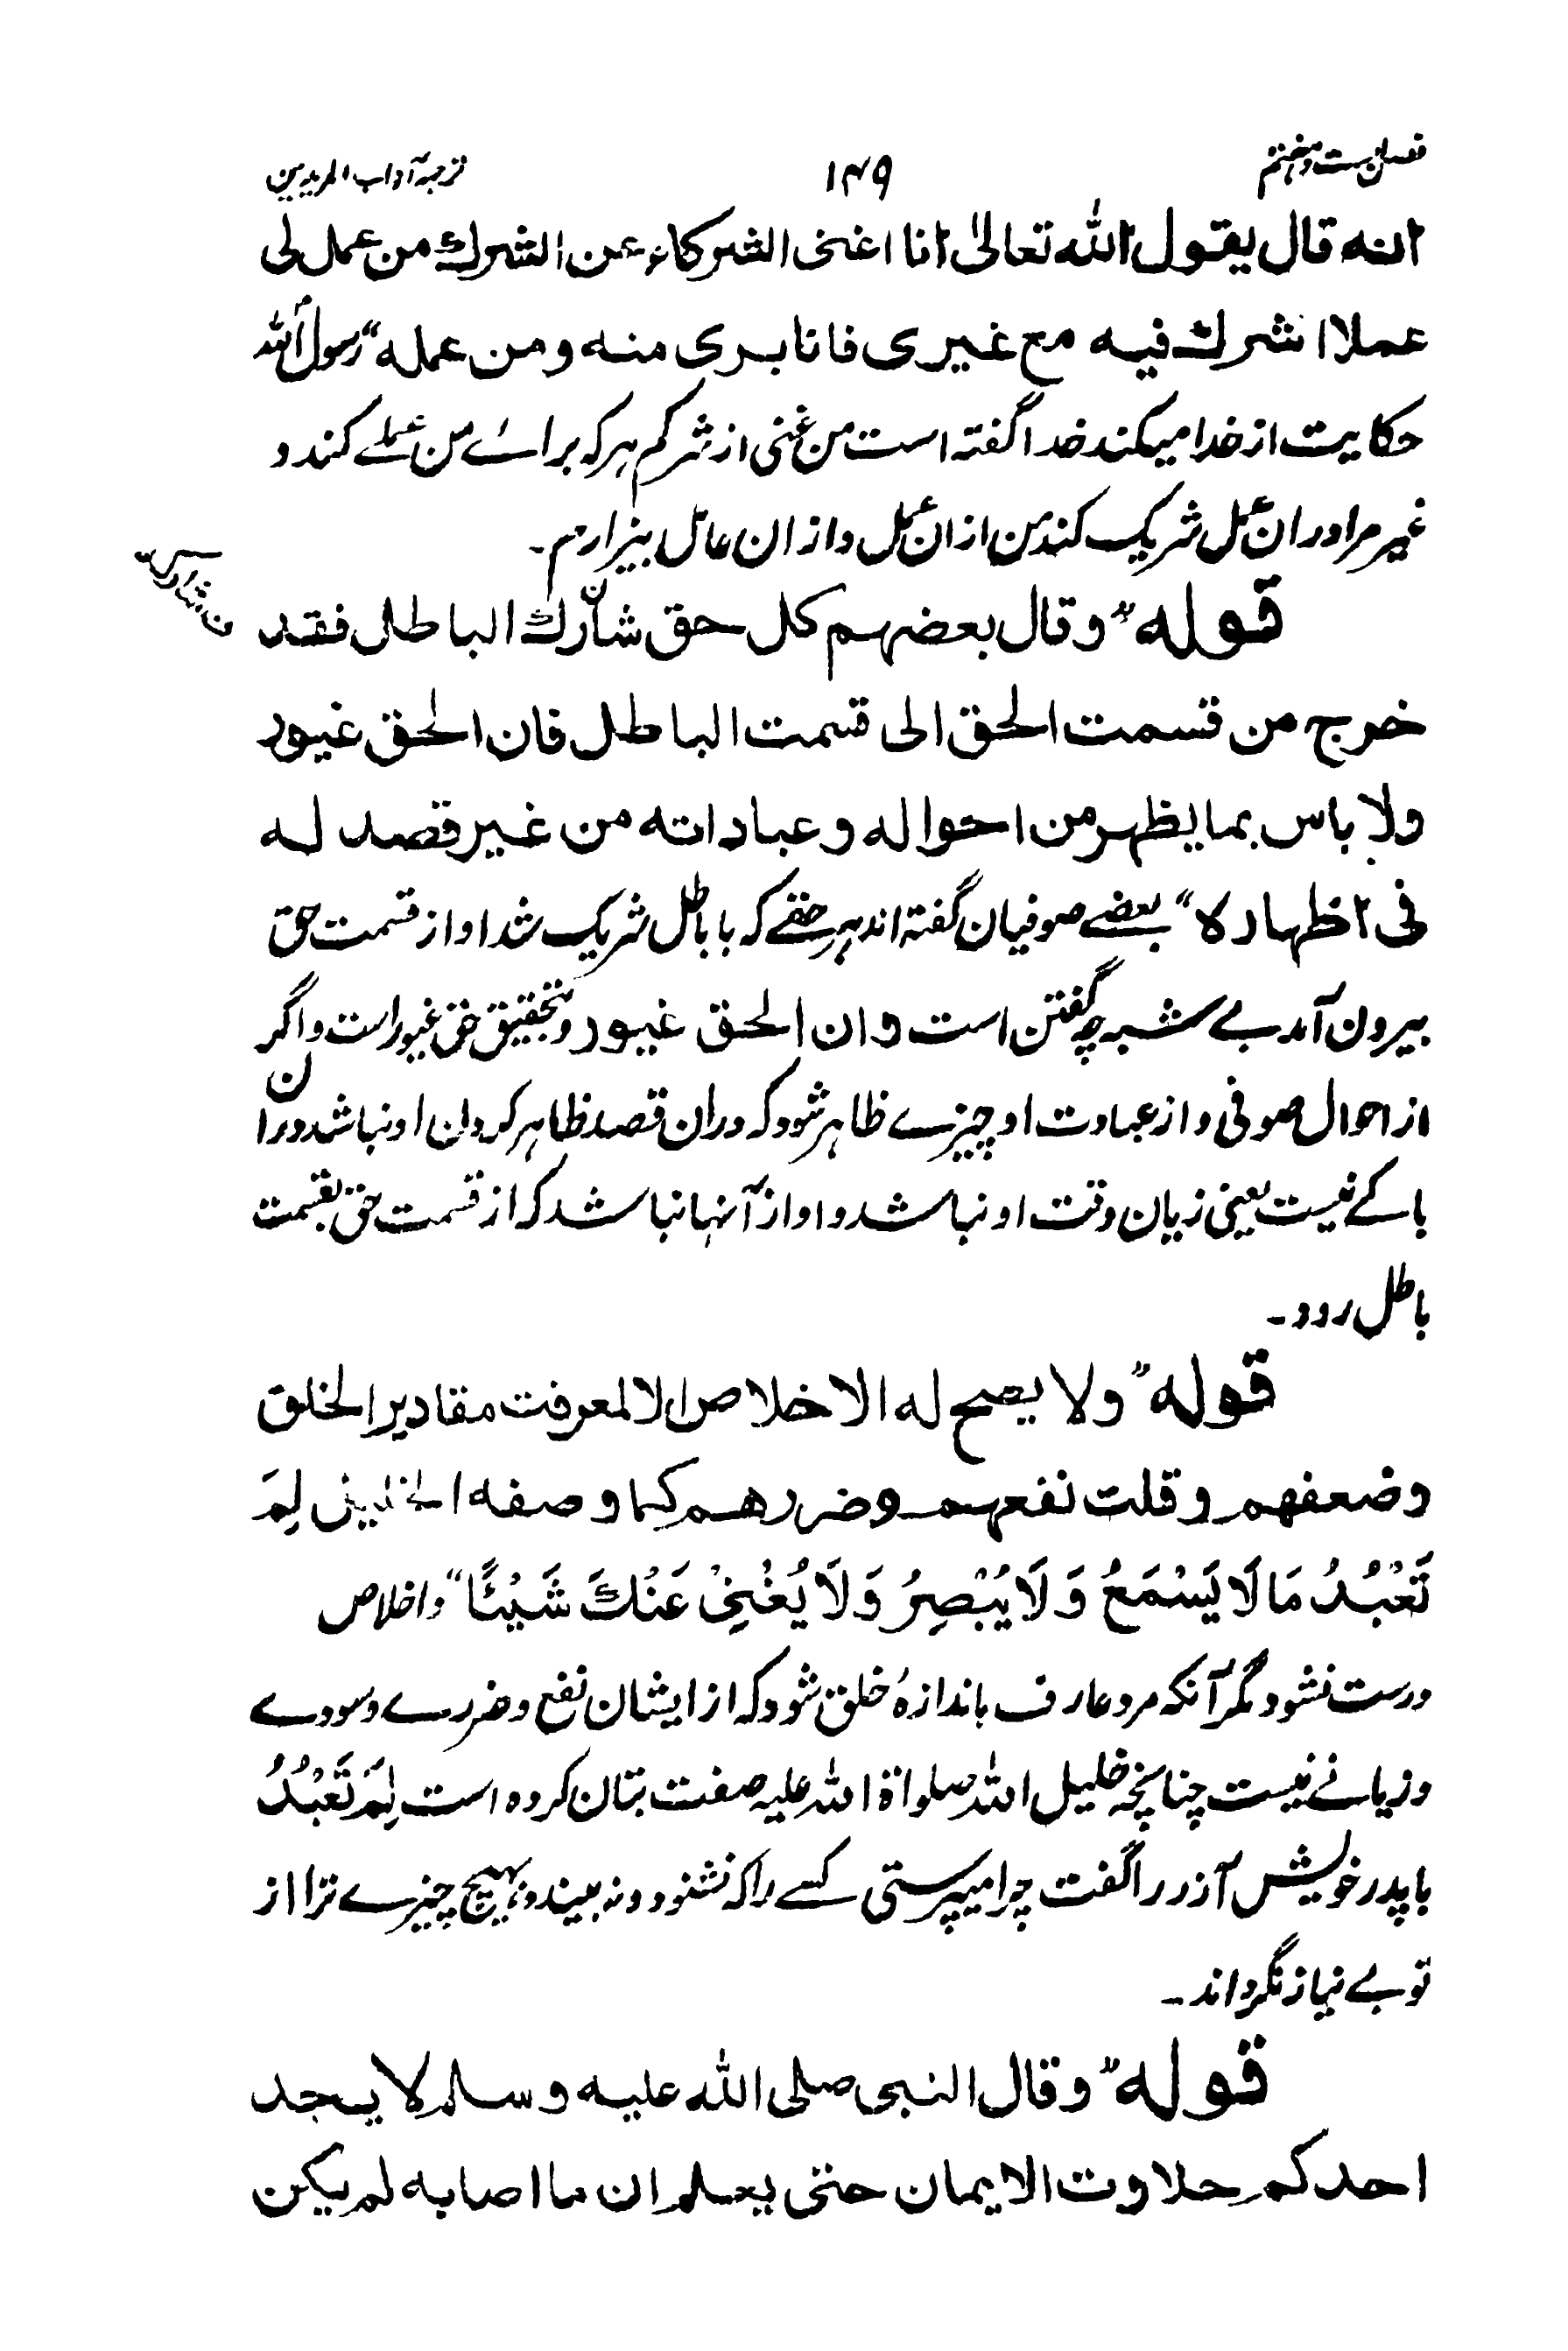 فصل بست و هفتم ۱۴۹ ترجمہ آداب المریدین
انه قال یقول الله تعالیٰ انا اغنی الشرکاء عن الشرك من عمل لی
عملا اشرك فیه مع غیری فانا بری منه ومن عمله" رسول الله
حکایت از خدا میکند خدا گفته است من غنی از شرکم هر که براے من عملے کند و
غیر مرا در ان عمل شریک کند من ازان عمل و ازان عامل بیزارم۔
قوله "وقال بعضهم کل حق شارك الباطل فقد
ن شارکه
خرج من قسمت الحق الی قسمت الباطل فان الحق غیور
ولا باس بما یظهر من احواله وعباداته من غیر قصد له
فی اظهاره" بعضے صوفیان گفته اند هر حقے که با باطل شریک شد او از قسمت حق
بیرون آمد بے شبه چه گفتن است وان الحق غیور و بتحقیق حق غیور است و اگر
از احوال صوفی و از عبادت او چیزے ظاهر شود که دران قصد ظاهر کردن او نباشد ورا
باکے نیست یعنی زیان وقت او نباشد و او از آنها نباشد که از قسمت حق بقسمت
باطل رود۔
قوله "ولا یصح له الاخلاص الا لمعرفت مقادیر الخلق
وضعفهم وقلت نفعهم وضررهم کما وصفه الخلیل لِمَ
تَعْبُدُ مَا لَا یَسْمَعُ وَلَا یُبْصِرُ وَلَا یُغْنِیْ عَنْكَ شَیْئًا" و اخلاص
درست نشود مگر آنکه مرد عارف باندازهٔ خلق شود که از ایشان نفع و ضررے و سودے
و زیانے نیست چنانچه خلیل الله صلواة الله علیه صفت بتان کرده است لِمَ تَعْبُدُ
با پدر خویش آزر را گفت چرا میپرستی کسے را که نشنود و نه بیند و بهیچ چیزے ترا از
تو بے نیاز نگرداند۔
قوله "وقال النبی صلی الله علیه وسلم لا یجد
احدکم حلاوت الایمان حتی یعلم ان ما اصابه لم یکن